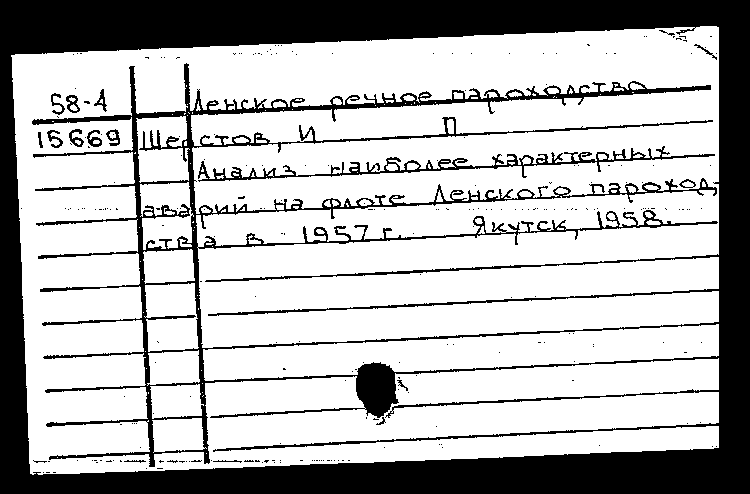 58-4 Ленское речное пароходство
15669 Шерстов, И П
Анализ наиболее характерных
аварий на флоте Ленского пароход-
ства в 1957 г. Якутск, 1958.